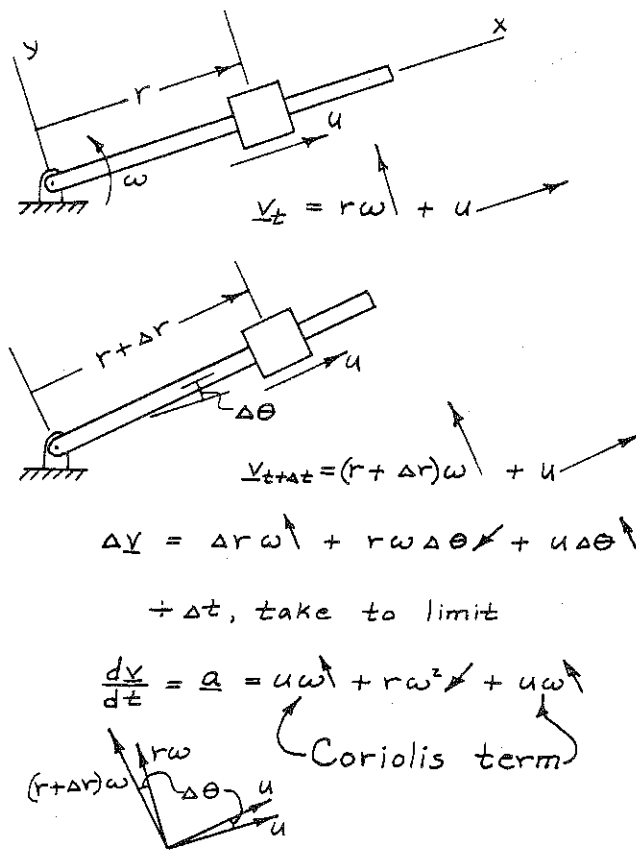 y
x
r
u
ω
v_t = rω↖ + u↗
r + Δr
u
Δθ
v_{t+Δt} = (r + Δr)ω↖ + u↗
Δv = Δr ω↖ + rω Δθ↙ + u Δθ↖
÷ Δt, take to limit
dv/dt = a = uω↖ + rω²↙ + uω↖
Coriolis term
rω
(r+Δr)ω
Δθ
u
u